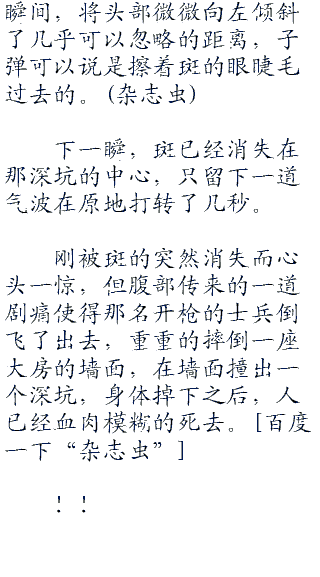 瞬间，将头部微微向左倾斜
了几乎可以忽略的距离，子
弹可以说是擦着斑的眼睫毛
过去的。(杂志虫)
下一瞬，斑已经消失在
那深坑的中心，只留下一道
气波在原地打转了几秒。
刚被斑的突然消失而心
头一惊，但腹部传来的一道
剧痛使得那名开枪的士兵倒
飞了出去，重重的摔倒一座
大房的墙面，在墙面撞出一
个深坑，身体掉下之后，人
已经血肉模糊的死去。[百度
一下“杂志虫”]
！！